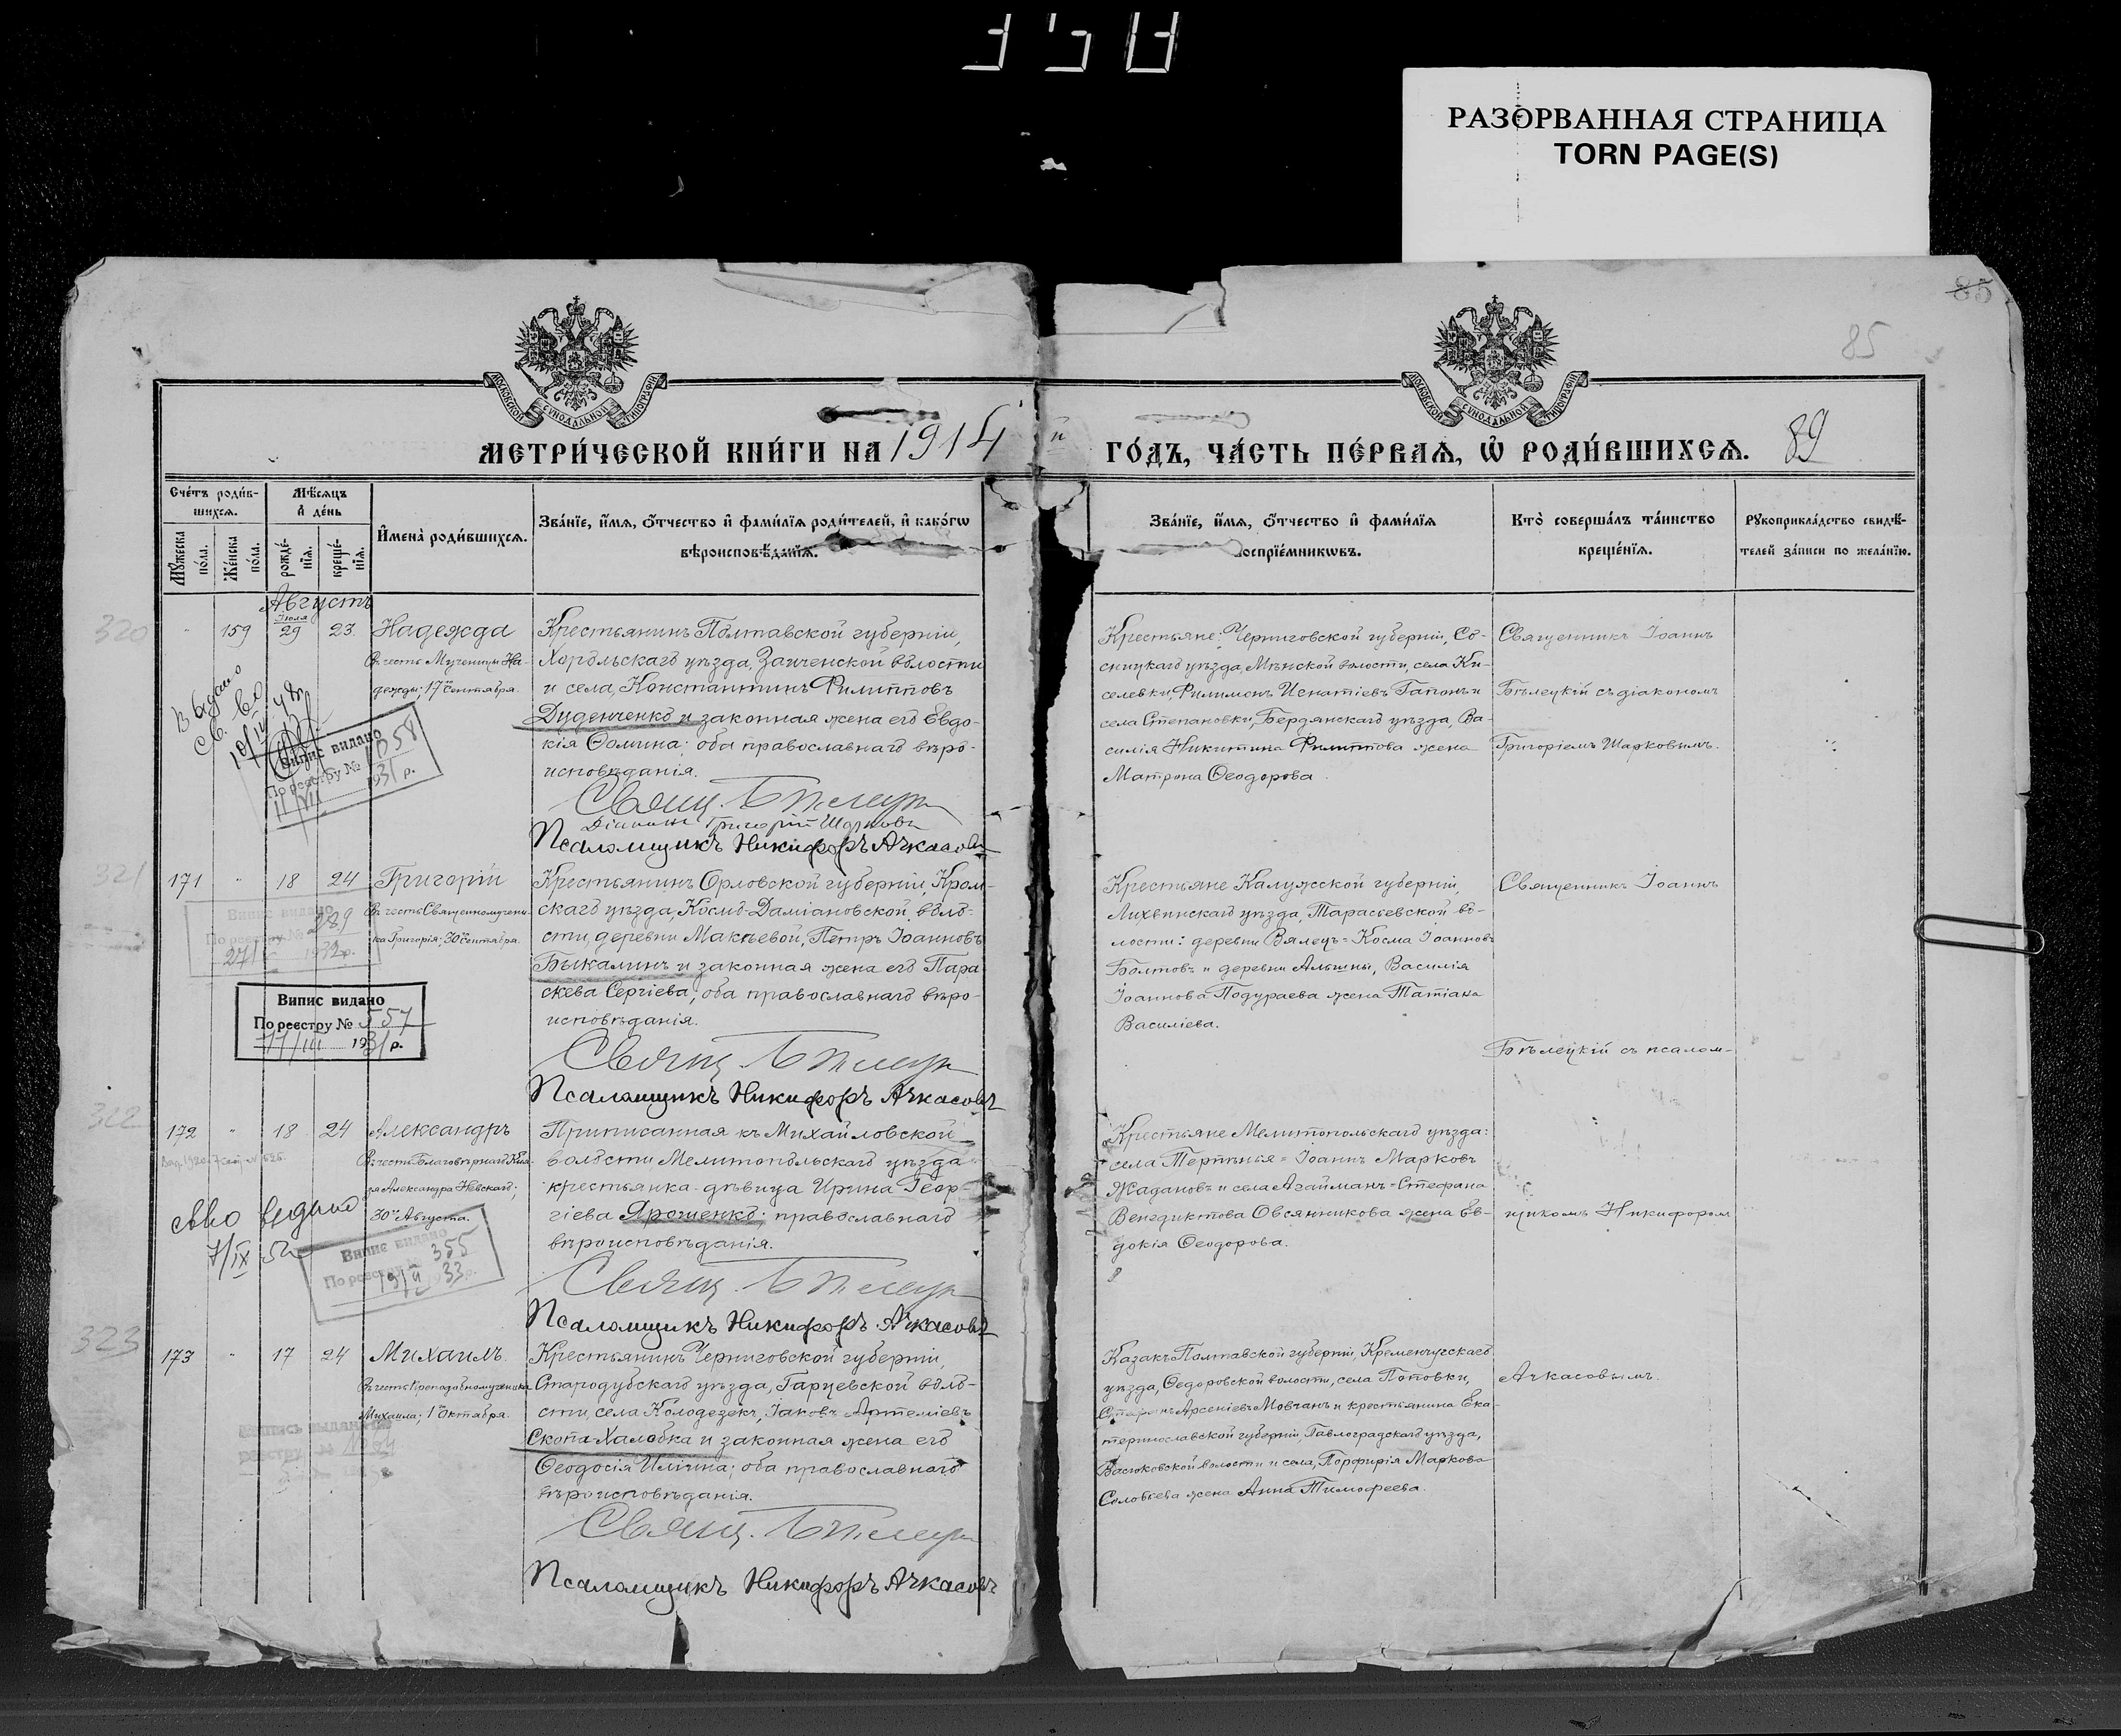 РАЗОРВАННАЯ СТРАНИЦА
TORN PAGE(S)
85
85
МОСКОВСКОЙ СУНОДАЛЬНОЙ ТИПОГРАФІИ
МОСКОВСКОЙ СУНОДАЛЬНОЙ ТИПОГРАФІИ
МЕТРИ́ЧЕСКОЙ КНИ́ГИ НА 1914 й ГО́ДЪ, ЧА́СТЬ ПЕ́РВАѦ, Ѡ РОДИ́ВШИХСѦ. 89
Сче́тъ роди́в-
шихсѧ.
Мꙋжеска по́ла.
Же́нска по́ла.
Мѣ́сѧцъ
и҆ де́нь
рожде́-
нїѧ.
креще́-
нїѧ.
И҆мена̀ роди́вшихсѧ.
Зва́нїе, и҆́мѧ, ѻ҆́тчество и҆ фами́лїѧ роди́телей, и҆ како́гѡ
вѣроисповѣ́данїѧ.
Зва́нїе, и҆́мѧ, ѻ҆́тчество и҆ фами́лїѧ
воспрїе́мникѡвъ.
Кто̀ соверша́лъ та́инство
креще́нїѧ.
Рꙋкоприкла́дство свидѣ́-
телей за́писи по жела́нїю.
320
Августъ
Іюля
" 159 29 23. Надежда
Въ честь Мученицы На-
дежды; 17го Сентября.
Крестьянинъ Полтавской губерніи,
Хорольскаго уѣзда, Заиченской волости
и села, Константинъ Филипповъ
Дуденченко и законная жена его Евдо-
кія Ѳомина; оба православнаго вѣро-
исповѣданія.
Свящ. Бѣлецкій
Діаконъ Григорій Шарковъ
Псаломщикъ Никифоръ Ачкасовъ
Крестьяне: Черниговской губерніи, Со-
сницкаго уѣзда, Мѣнской волости, села Ки-
селевки, Филимонъ Игнатіевъ Гапонъ и
села Степановки, Бердянскаго уѣзда, Ва-
силія Никитина Филиппова жена
Матрона Ѳеодорова.
Священникъ Іоаннъ
Бѣлецкій съ діакономъ
Григоріемъ Шарковымъ.
Випис видано
По реєстру № 1058
11/VII 1931 р.
321
171 " 18 24 Григорій
Въ честь Священномучени-
ка Григорія; 30го Сентября.
Крестьянинъ Орловской губерніи, Кром-
скаго уѣзда, Космо-Даміановской воло-
сти, деревни Макѣевой, Петръ Іоанновъ
Быкалинъ и законная жена его Пара-
скева Сергіева; оба православнаго вѣро-
исповѣданія.
Свящ. Бѣлецкій
Псаломщикъ Никифоръ Ачкасовъ
Крестьяне Калужской губерніи,
Лихвинскаго уѣзда, Тарасьевской во-
лости: деревни Вялецъ = Косма Іоанновъ
Болтовъ и деревни Альшны, Василія
Іоаннова Подураева жена Татіана
Василіева.
Священникъ Іоаннъ
Бѣлецкій съ псалом-
Випис видано
По реєстру № 289
1932 р.
Випис видано
По реєстру № 557
11/III 1931 р.
322
172 " 18 24 Александръ
Въ честь Благовѣрнаго Кня-
зя Александра Невскаго;
30го Августа.
Приписанная къ Михайловской
волости Мелитопольскаго уѣзда
крестьянка-дѣвица Ирина Геор-
гіева Ярошенко; православнаго
вѣроисповѣданія.
Свящ. Бѣлецкій
Псаломщикъ Никифоръ Ачкасовъ
Крестьяне Мелитопольскаго уѣзда:
села Терпѣнья = Іоаннъ Марковъ
Жадановъ и села Агайманъ = Стефана
Венедиктова Овсянникова жена Ев-
докія Ѳеодорова.
щикомъ Никифоромъ
Випис видано
По реєстру № 355
19/II 1933 р.
323
173 " 17 24 Михаилъ.
Въ честь Преподобномученика
Михаила; 1го Октября.
Крестьянинъ Черниговской губерніи,
Стародубскаго уѣзда, Гарцевской воло-
сти, села Колодезекъ, Іаковъ Артеміевъ
Скопа-Халабка и законная жена его
Ѳеодосія Илліина; оба православнаго
вѣроисповѣданія.
Свящ. Бѣлецкій
Псаломщикъ Никифоръ Ачкасовъ
Казакъ Полтавской губерніи, Кременчугскаго
уѣзда, Ѳедоровской волости, села Потовки,
Арсеніевъ Мовчанъ и крестьянина Ека-
теринославской губерніи, Павлоградскаго уѣзда,
Васюковской волости и села, Порфирія Маркова
Соловьева жена Анна Тимофеева.
Ачкасовымъ.